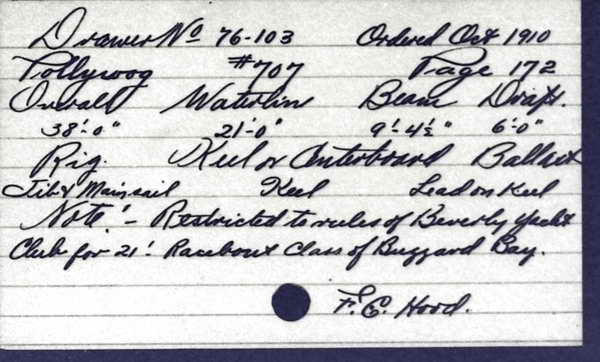 Drawer No 76-103 Ordered Oct 1910
Pollywog #707 Page 172
Overall Waterline Beam Draft.
38'-0" 21'-0" 9'-4½" 6'-0"
Rig. Keel or Centerboard Ballast
Jib & Mainsail Keel Lead on Keel
Note:- Restricted to rules of Beverly Yacht
Club for 21'. Raceabout Class of Buzzard Bay.
F. E. Hood.